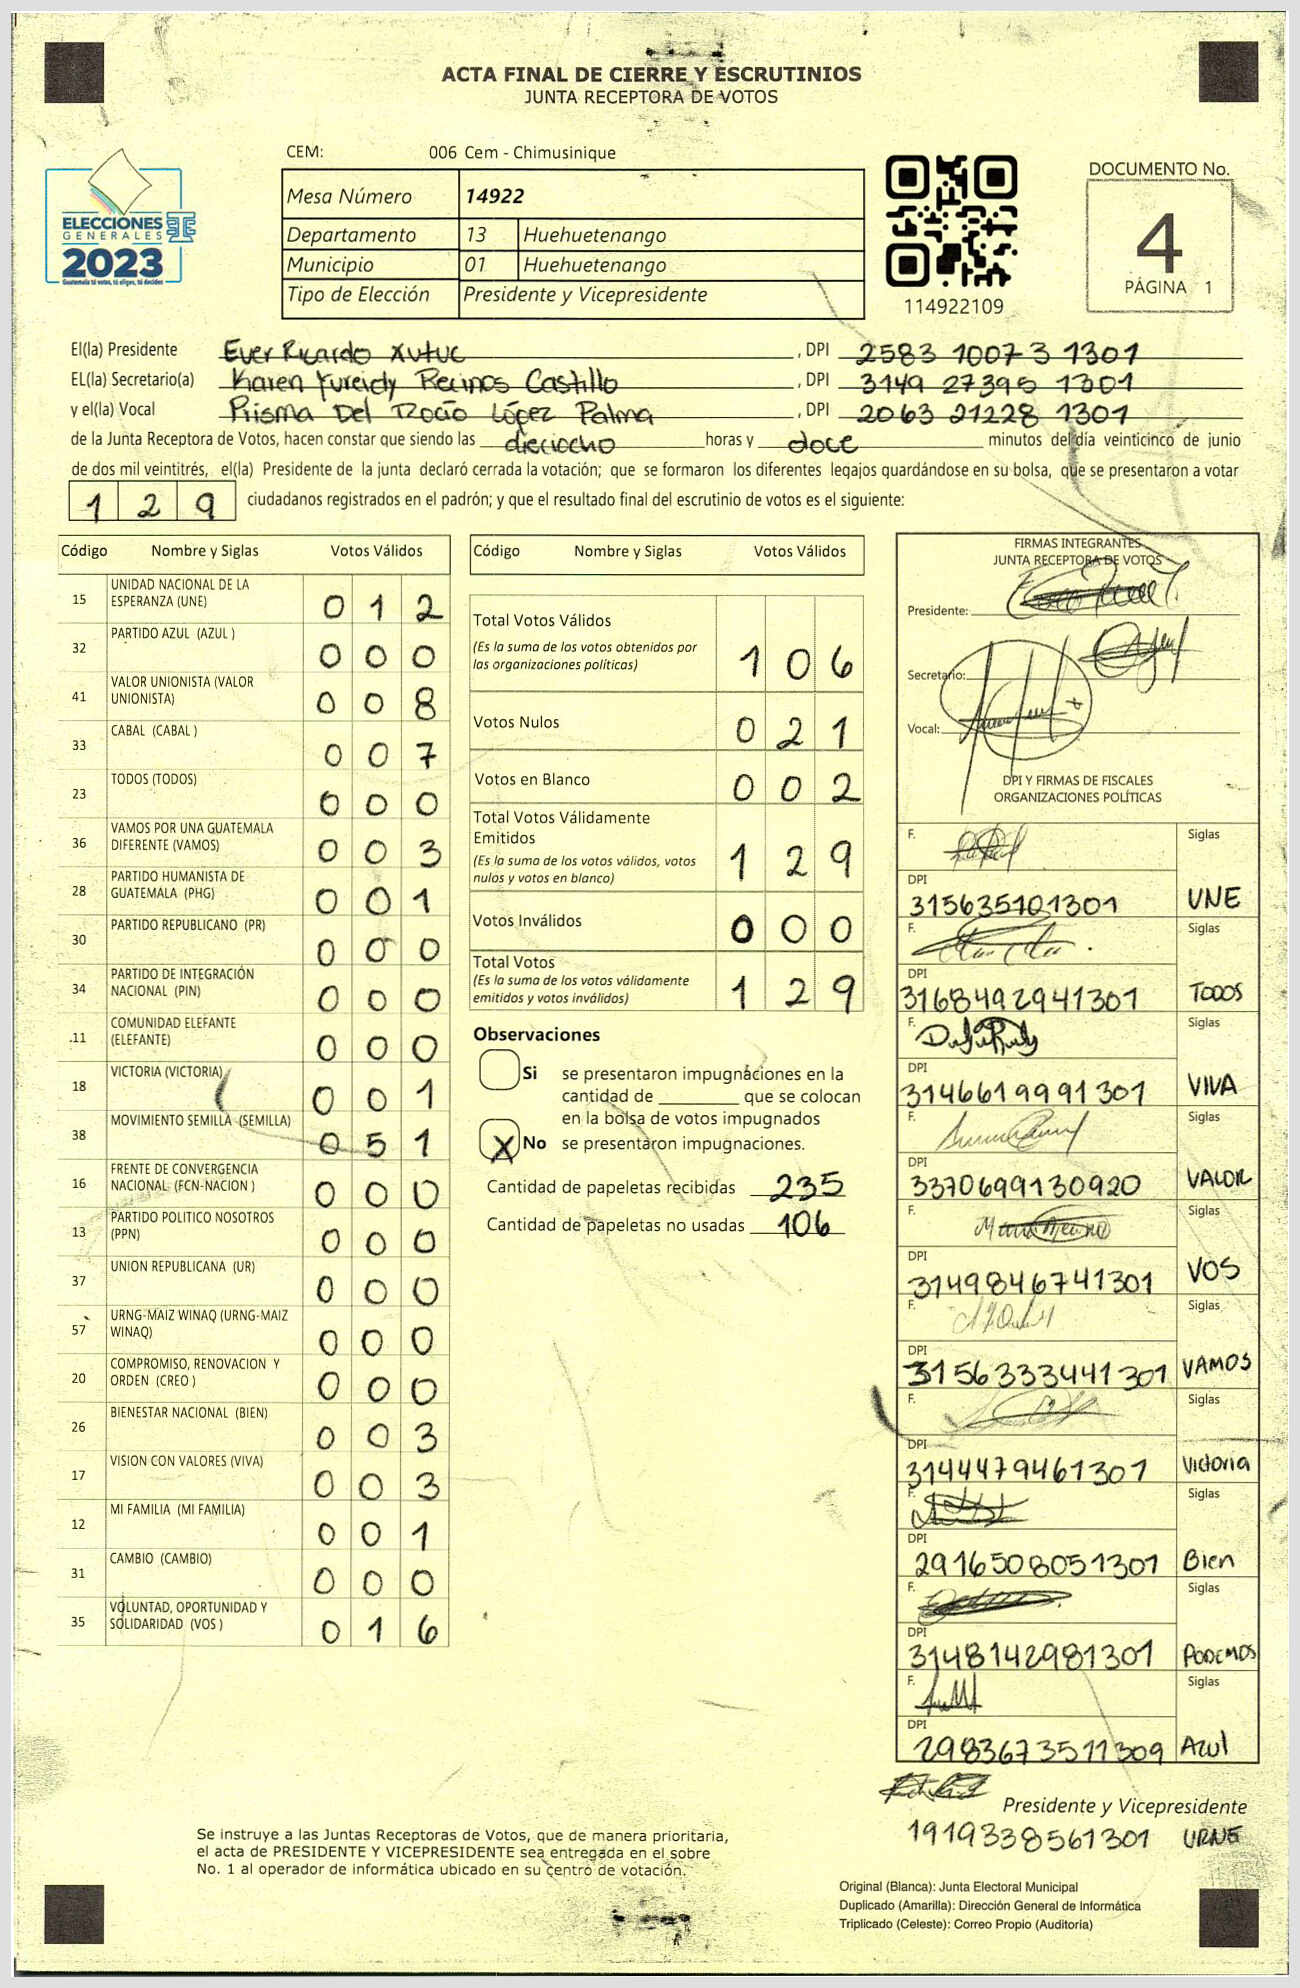 ACTA FINAL DE CIERRE Y ESCRUTINIOS
JUNTA RECEPTORA DE VOTOS
CEM: 006 Cem - Chimusinique
Mesa Número 14922
Departamento 13 Huehuetenango
Municipio 01 Huehuetenango
Tipo de Elección Presidente y Vicepresidente
ELECCIONES
GENERALES
2023
Guatemala tú votas, tú eliges, tú decides
114922109
DOCUMENTO No.
4
PÁGINA 1
El(la) Presidente Ever Ricardo Xutuc, DPI 2583 10073 1301
EL(la) Secretario(a) Karen Yureidy Recinos Castillo, DPI 3149 27395 1301
y el(la) Vocal Prisma Del Rocío López Palma, DPI 2063 21228 1301
de la Junta Receptora de Votos, hacen constar que siendo las dieciocho horas y doce minutos del día veinticinco de junio
de dos mil veintitrés, el(la) Presidente de la junta declaró cerrada la votación; que se formaron los diferentes legajos quardándose en su bolsa, que se presentaron a votar
129 ciudadanos registrados en el padrón; y que el resultado final del escrutinio de votos es el siguiente:
Código Nombre y Siglas Votos Válidos
15 UNIDAD NACIONAL DE LA
ESPERANZA (UNE) 012
32 PARTIDO AZUL (AZUL ) 000
41 VALOR UNIONISTA (VALOR
UNIONISTA) 008
33 CABAL (CABAL ) 007
23 TODOS (TODOS) 000
36 VAMOS POR UNA GUATEMALA
DIFERENTE (VAMOS) 003
28 PARTIDO HUMANISTA DE
GUATEMALA (PHG) 001
30 PARTIDO REPUBLICANO (PR) 000
34 PARTIDO DE INTEGRACIÓN
NACIONAL (PIN) 000
11 COMUNIDAD ELEFANTE
(ELEFANTE) 000
18 VICTORIA (VICTORIA) 001
38 MOVIMIENTO SEMILLA (SEMILLA) 051
16 FRENTE DE CONVERGENCIA
NACIONAL (FCN-NACION ) 000
13 PARTIDO POLITICO NOSOTROS
(PPN) 000
37 UNION REPUBLICANA (UR) 000
57 URNG-MAIZ WINAQ (URNG-MAIZ
WINAQ) 000
20 COMPROMISO, RENOVACION Y
ORDEN (CREO ) 000
26 BIENESTAR NACIONAL (BIEN) 003
17 VISION CON VALORES (VIVA) 003
12 MI FAMILIA (MI FAMILIA) 001
31 CAMBIO (CAMBIO) 000
35 VOLUNTAD, OPORTUNIDAD Y
SOLIDARIDAD (VOS ) 016
Código Nombre y Siglas Votos Válidos
Total Votos Válidos
(Es la suma de los votos obtenidos por
las organizaciones políticas) 106
Votos Nulos 021
Votos en Blanco 002
Total Votos Válidamente
Emitidos
(Es la suma de los votos válidos, votos
nulos y votos en blanco) 129
Votos Inválidos 000
Total Votos
(Es la suma de los votos válidamente
emitidos y votos inválidos) 129
Observaciones
Si se presentaron impugnaciones en la
cantidad de ________ que se colocan
en la bolsa de votos impugnados
X No se presentaron impugnaciones.
Cantidad de papeletas recibidas 235
Cantidad de papeletas no usadas 106
FIRMAS INTEGRANTES
JUNTA RECEPTORA DE VOTOS
Presidente:
Secretario:
Vocal:
DPI Y FIRMAS DE FISCALES
ORGANIZACIONES POLÍTICAS
F. Siglas
DPI
315635101301 UNE
F. Siglas
DPI
3168492941301 TODOS
F. Siglas
DPI
3146619991301 VIVA
F. Siglas
DPI
3370699130920 VALOR
F. Siglas
DPI
3149846741301 VOS
F. Siglas
DPI
3156333441301 VAMOS
F. Siglas
DPI
3144479461301 Victoria
F. Siglas
DPI
2916508051301 Bien
F. Siglas
DPI
3148142981301 PODEMOS
F. Siglas
DPI
2983673511309 Azul
Presidente y Vicepresidente
1919338561301 URNE
Se instruye a las Juntas Receptoras de Votos, que de manera prioritaria,
el acta de PRESIDENTE Y VICEPRESIDENTE sea entregada en el sobre
No. 1 al operador de informática ubicado en su centro de votación.
Original (Blanca): Junta Electoral Municipal
Duplicado (Amarilla): Dirección General de Informática
Triplicado (Celeste): Correo Propio (Auditoria)